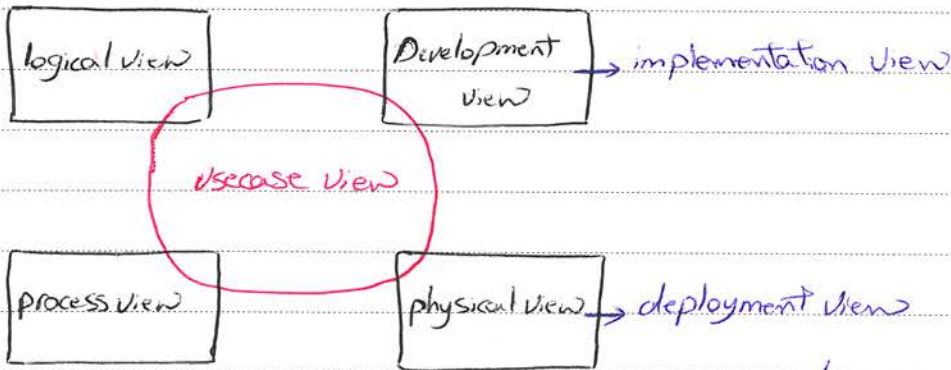 logical view
Development
view
→ implementation view
usecase view
process view
physical view
→ deployment view